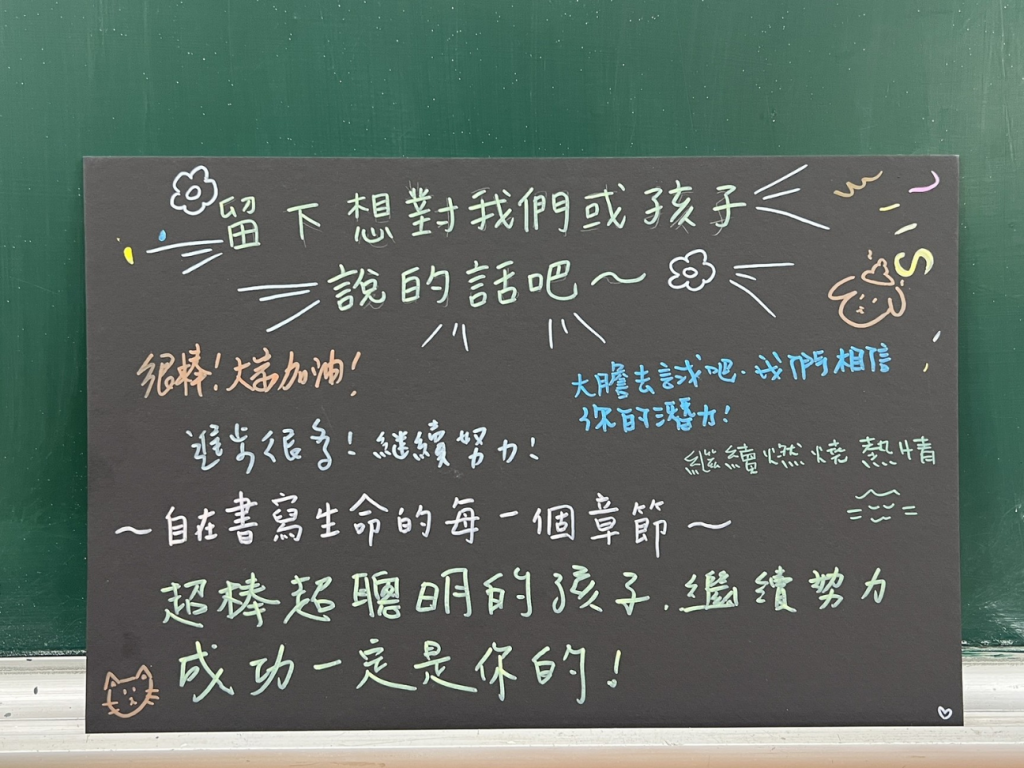 留下想對我們或孩子
說的話吧～
很棒！大家加油！
大膽去試吧.我們相信
你的潛力！
進步很多！繼續努力！
繼續燃燒熱情
～自在書寫生命的每一個章節～
超棒超聰明的孩子.繼續努力
成功一定是你的！